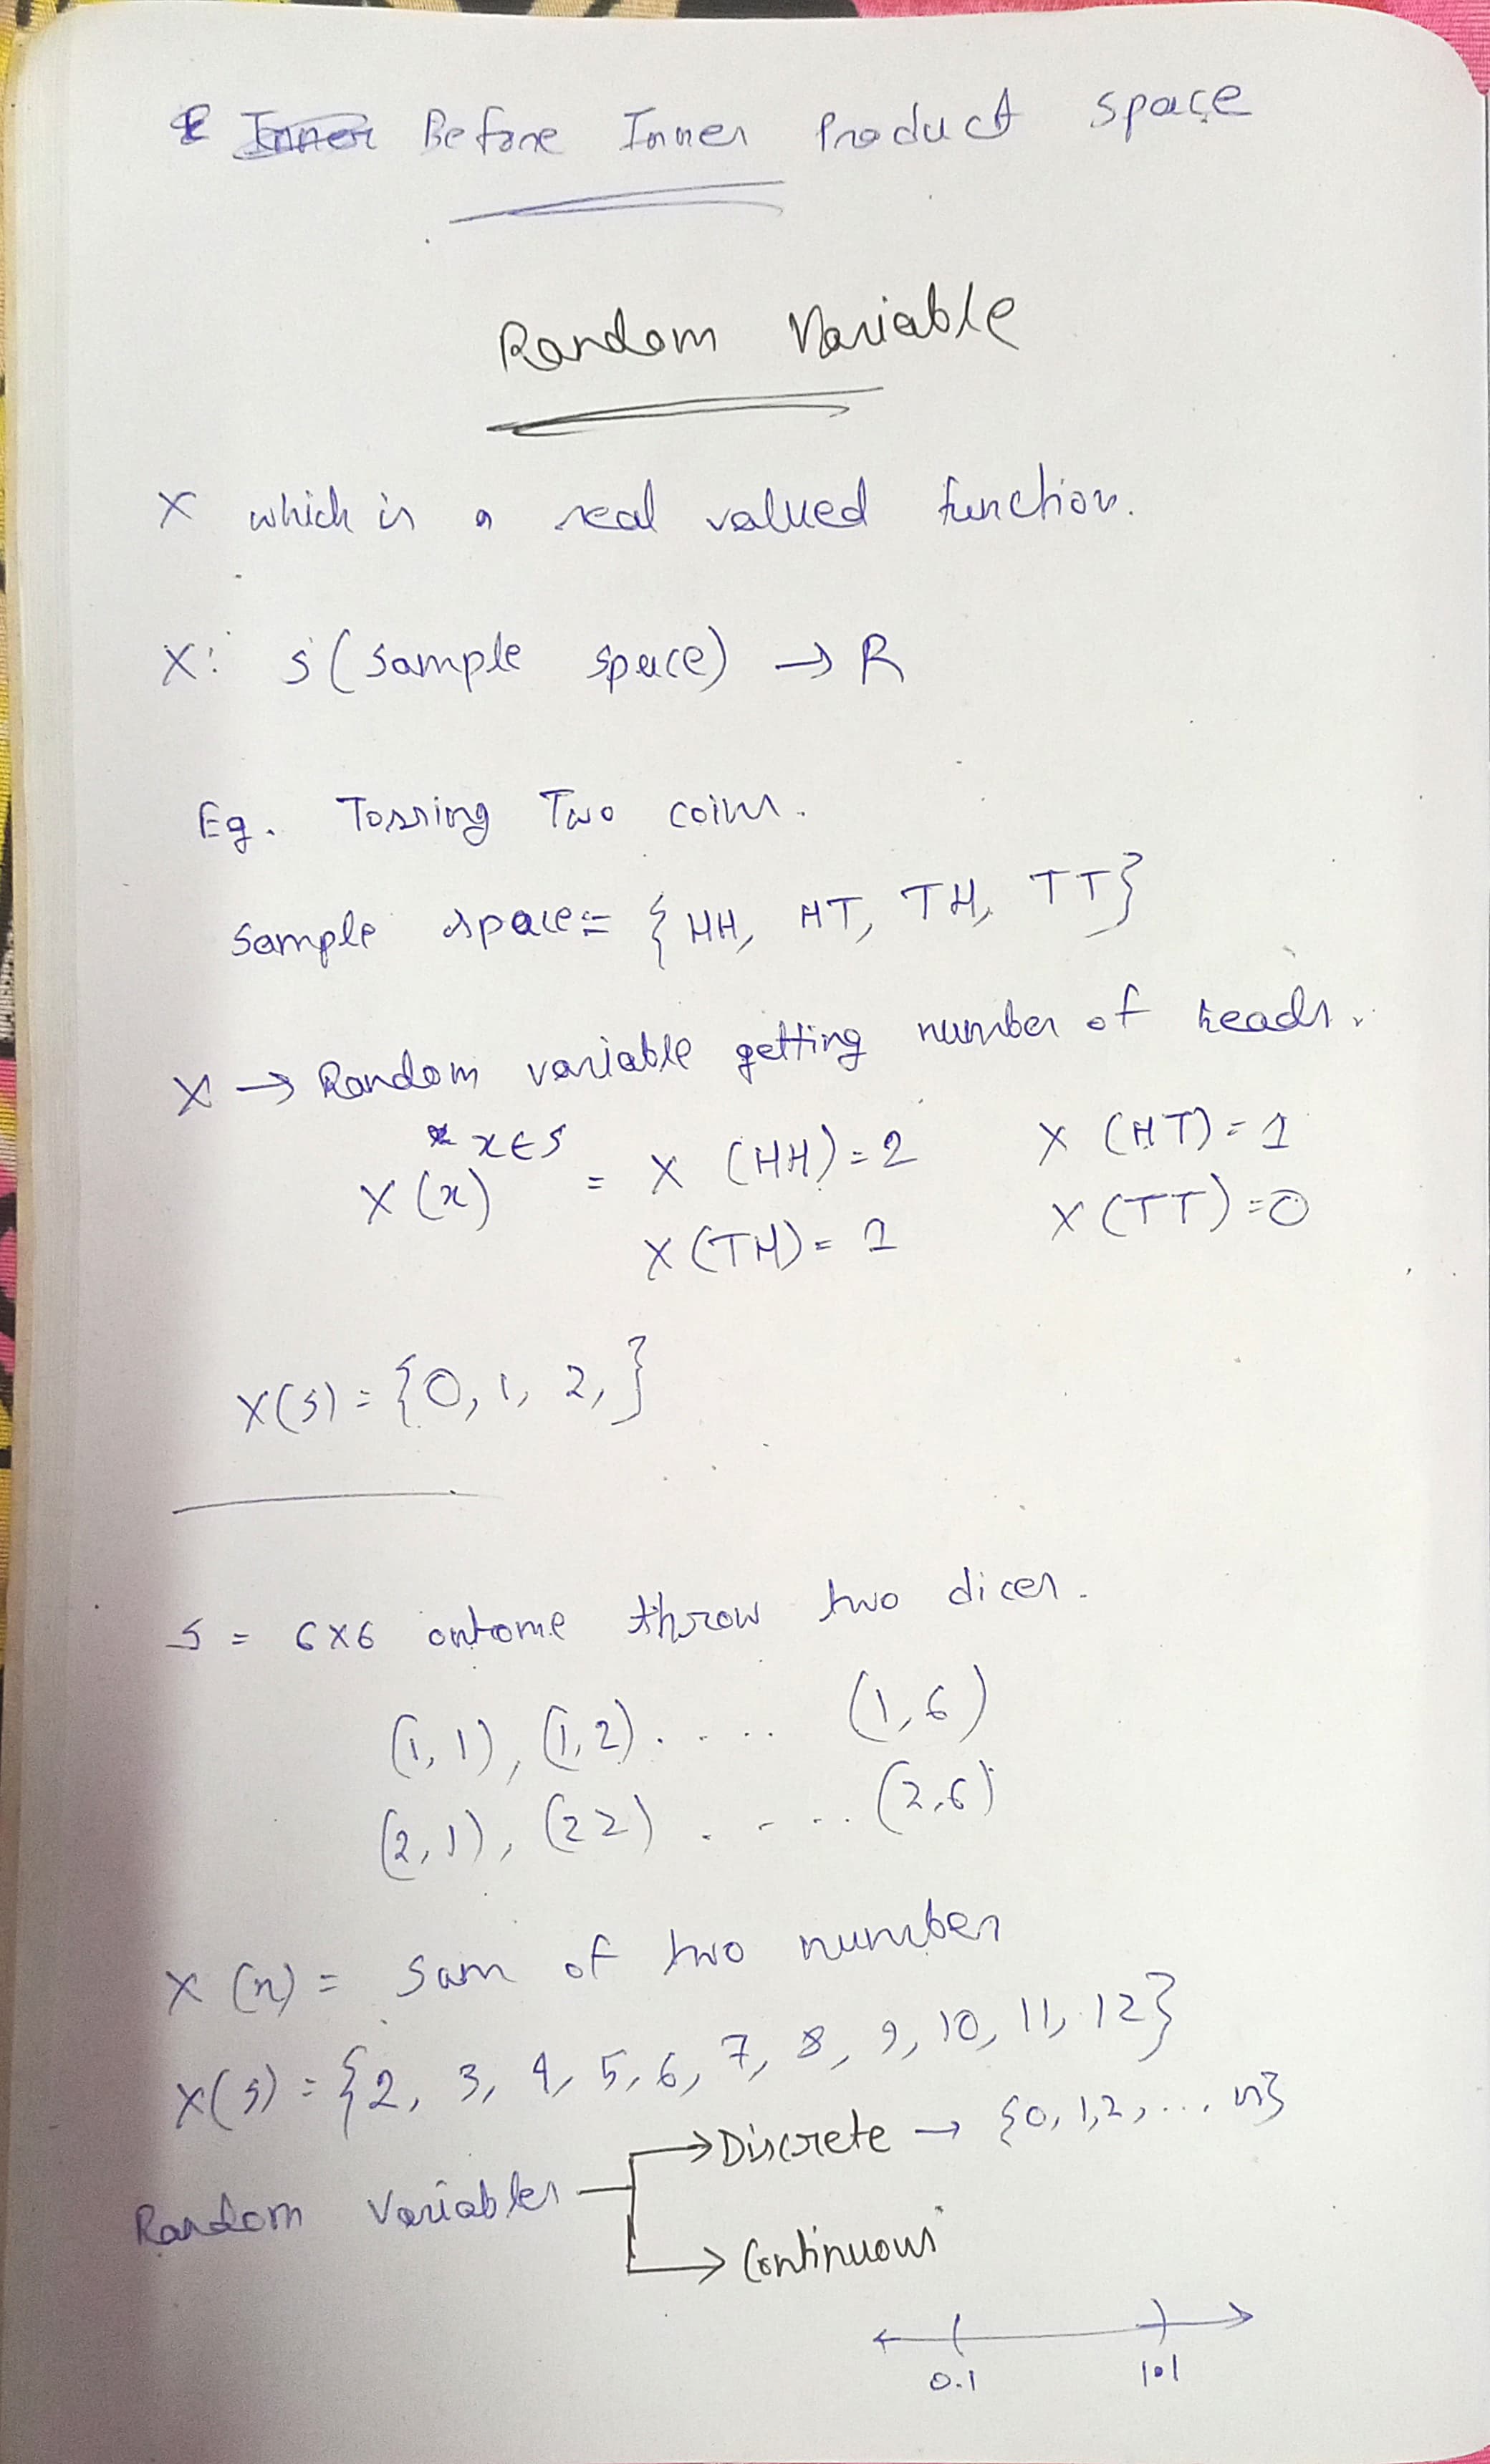 Before Inner Product space
Random Variable
X which is a real valued function.
X: S(Sample space) → R
Eg. Tossing Two coins.
Sample space = {HH, HT, TH, TT}
X → Random variable getting number of heads.
x∈S
X(x) = X (HH)=2 X (HT)=1
X(TH)=1 X(TT)=0
X(S)={0, 1, 2,}
S = 6x6 outcome throw two dices.
(1,1), (1,2)..... (1,6)
(2,1), (22) ..... (2,6)
X (x) = Sum of two number
X(S) = {2, 3, 4, 5, 6, 7, 8, 9, 10, 11, 12}
Random Variables → Discrete → {0, 1,2, ... n}
→ Continuous
0.1 1.1